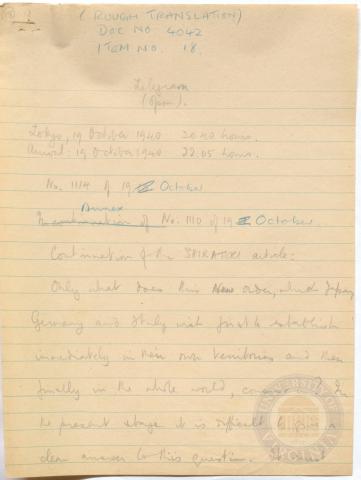 (ROUGH TRANSLATION)
DOC NO. 4042
ITEM NO. 18.
Telegram
(Open).
Tokyo, 19 October 1940 20.40 hours.
Arrival: 19 October 1940 22.05 hours.
No. 1114 of 19 October
Annex
In continuation of No. 1110 of 19 October.
Continuation of the SHIRATORI article:
Only what does this New order, which Japan
Germany and Italy wish first to establish
immediately in their own territories and then
finally in the whole world, In
the present stage it is difficult to give a
clear answer to this question. It must
UNIVERSITY OF VIRGINIA